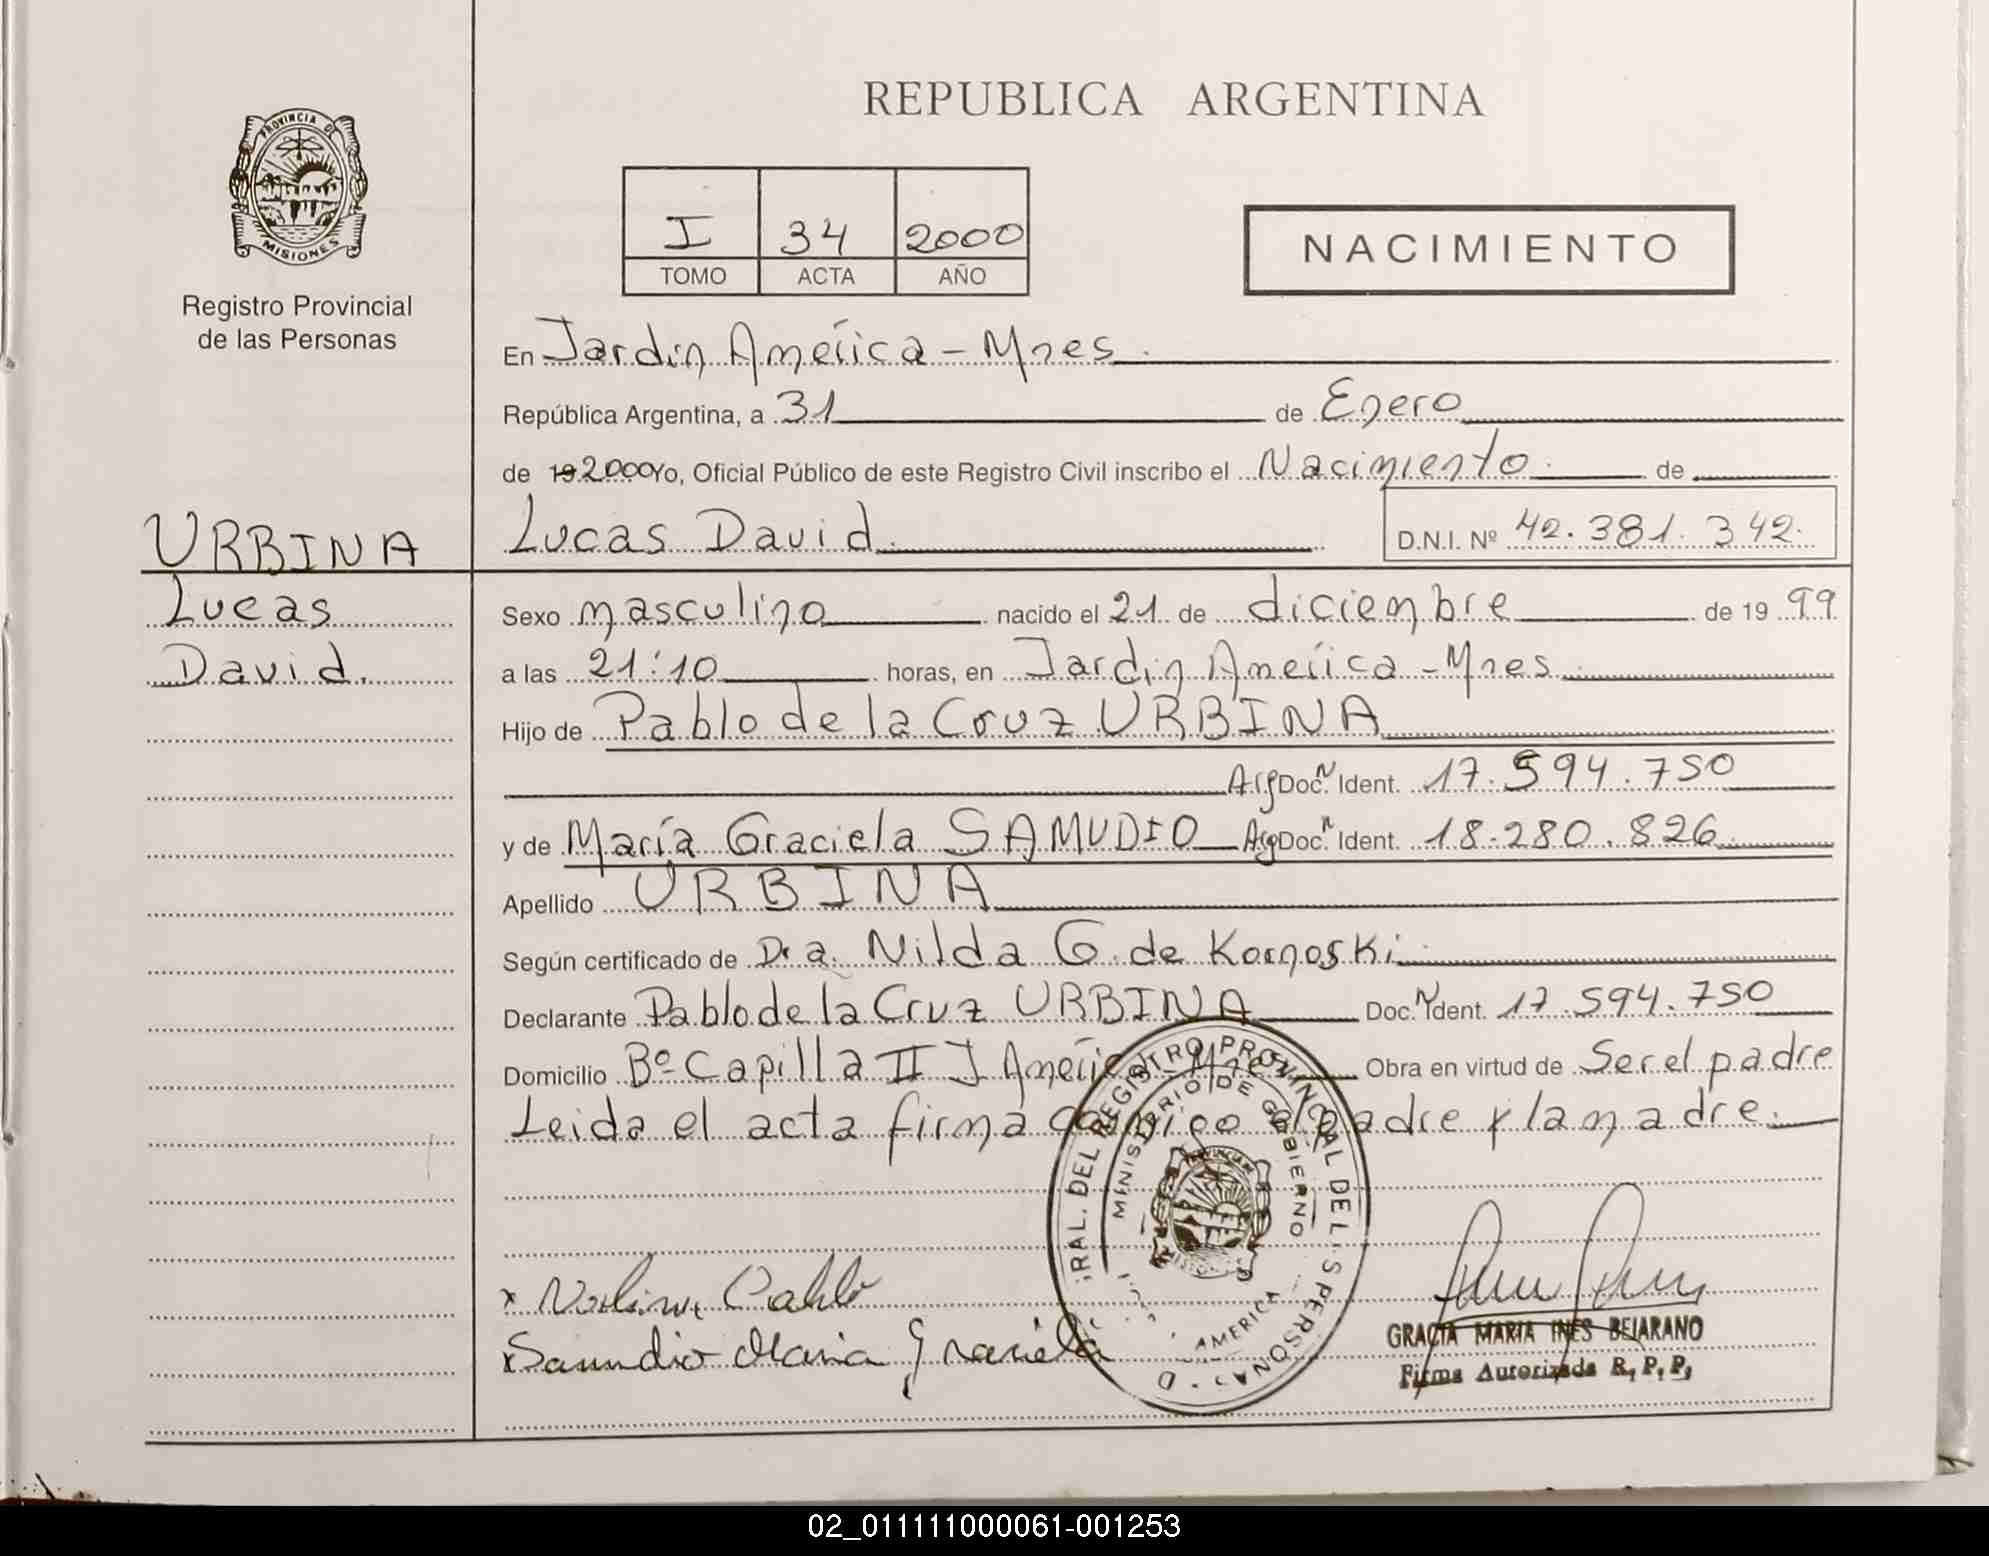 REPUBLICA ARGENTINA
PROVINCIA DE
MISIONES
Registro Provincial
de las Personas
I 34 2000
TOMO ACTA AÑO
NACIMIENTO
En Jardin América - Mnes.
República Argentina, a 31 de Enero
de 19 2000 Yo, Oficial Público de este Registro Civil inscribo el Nacimiento de
URBINA
Lucas
David.
Lucas David. D.N.I. Nº 42.381.342.
Sexo masculino nacido el 21 de diciembre de 19 99
a las 21:10 horas, en Jardin América - Mnes.
Hijo de Pablo de la Cruz URBINA
Arg Doc. N Ident. 17.594.750
y de María Graciela SAMUDIO Arg Doc. N Ident. 18.280.826.
Apellido URBINA
Según certificado de Dra. Nilda G. de Kornoski.
Declarante Pablo de la Cruz URBINA Doc. N Ident. 17.594.750
Domicilio Bº Capilla II J América - Mnes Obra en virtud de Ser el padre
Leida el acta firma conmigo el padre y la madre.
RAL. DEL REGISTRO PROVINCIAL DE LAS PERSONAS
MINISTERIO DE GOBIERNO
AMERICA
x Urbina Pablo
x Samudio Maria Graciela
GRACIA MARIA INES BEJARANO
Firma Autorizada R. P. P.
02_011111000061-001253